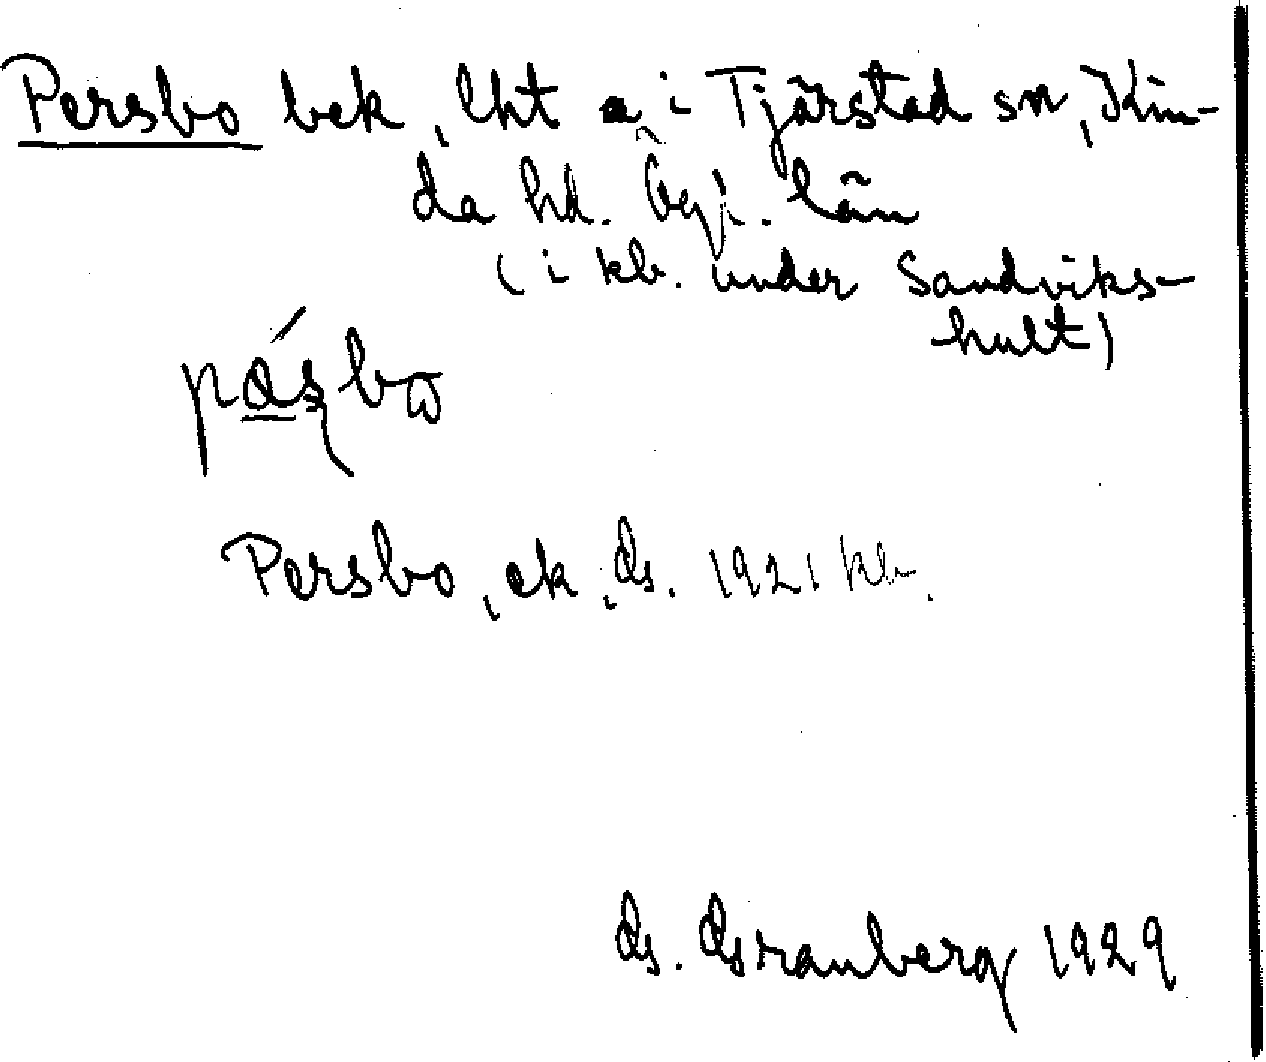 Persbo bek, lht i Tjärstad sn, Kin-
da hd. Ög. län
(i kb. under Sandviks-
hult)
Persbo, ek, G. 1921 kb.
G. Granberg 1929